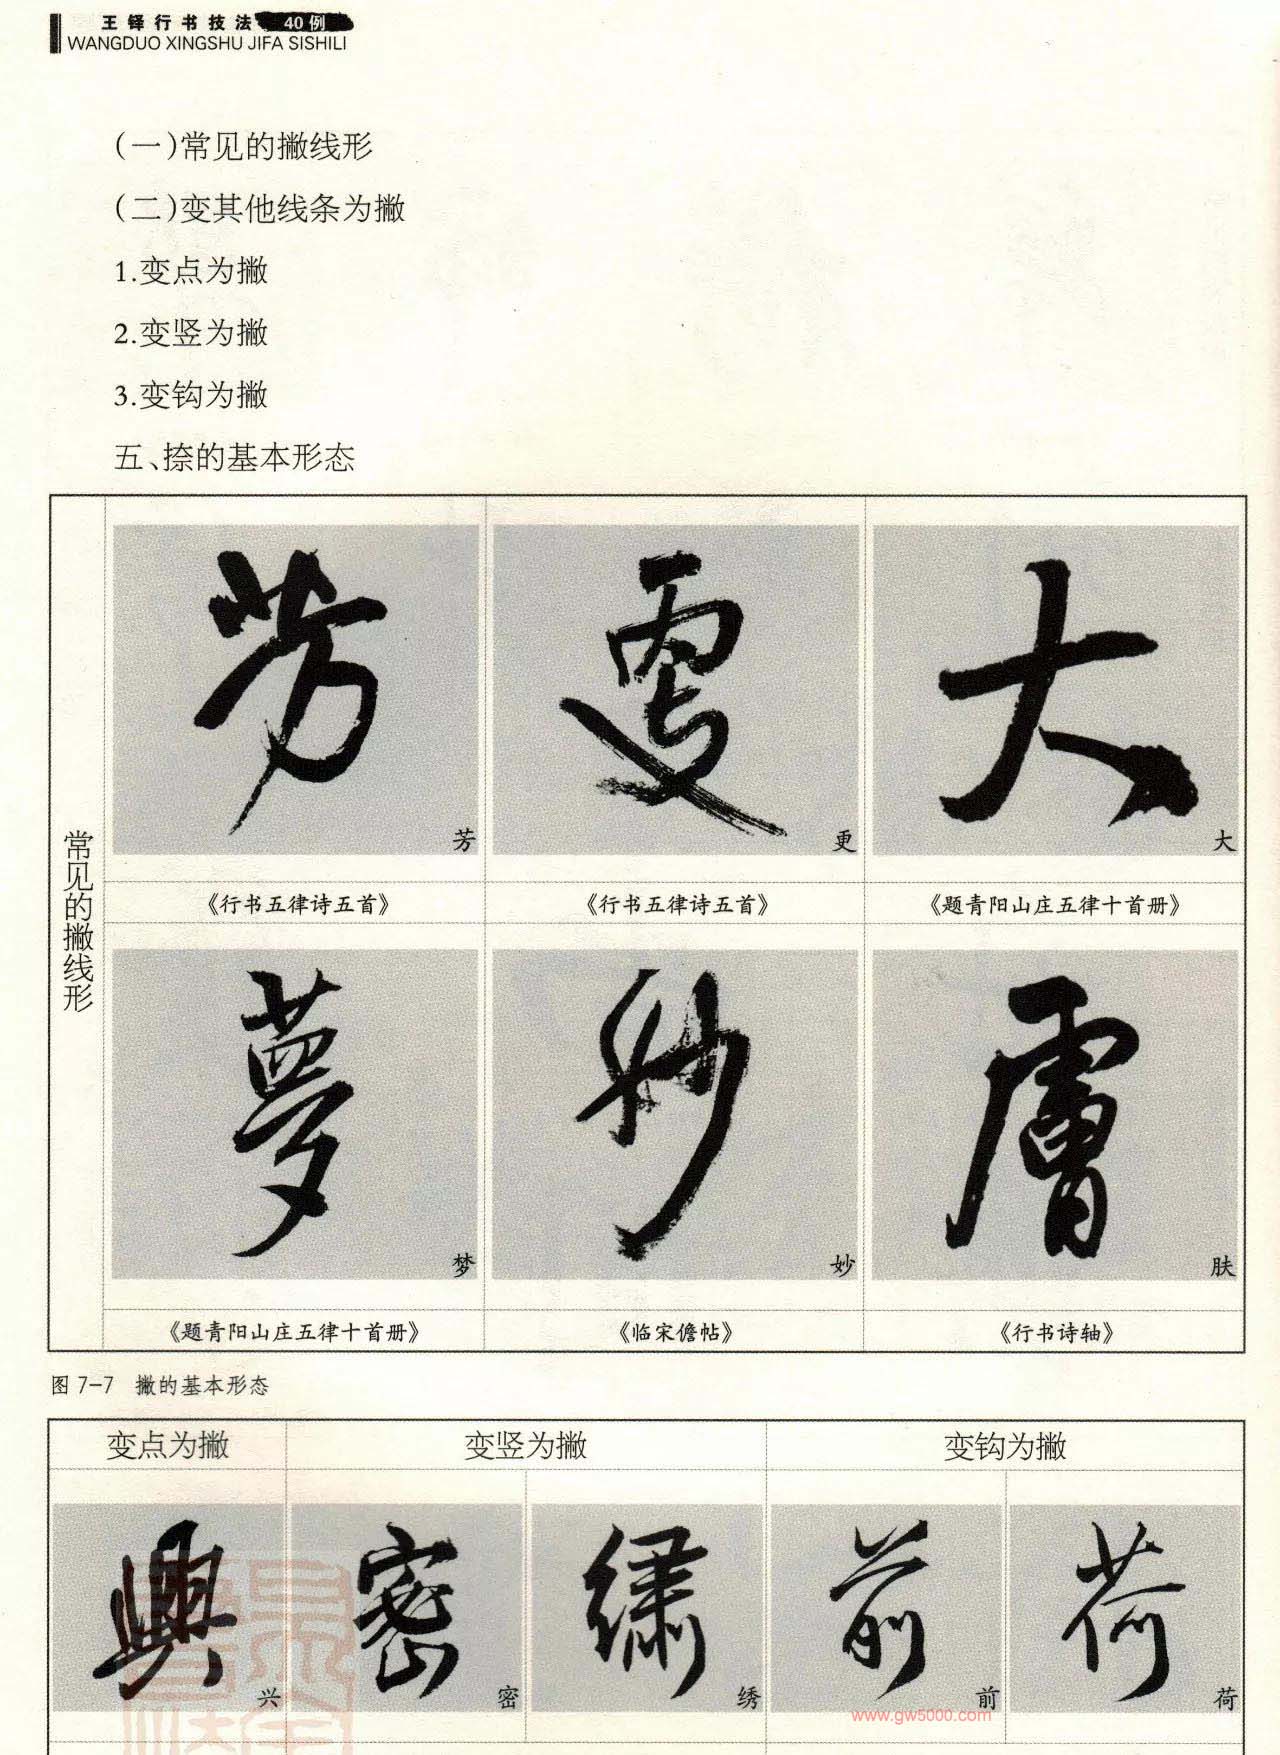 王铎行书技法 40例
WANGDUO XINGSHU JIFA SISHILI
(一)常见的撇线形
(二)变其他线条为撇
1.变点为撇
2.变竖为撇
3.变钩为撇
五、捺的基本形态
常见的撇线形
芳 更 大
芳 更 大
《行书五律诗五首》 《行书五律诗五首》 《题青阳山庄五律十首册》
夢 妙 膚
梦 妙 肤
《题青阳山庄五律十首册》 《临宋儋帖》 《行书诗轴》
图 7-7 撇的基本形态
变点为撇 变竖为撇 变钩为撇
興 密 繡 前 荷
兴 密 绣 前 荷
www.gw5000.com